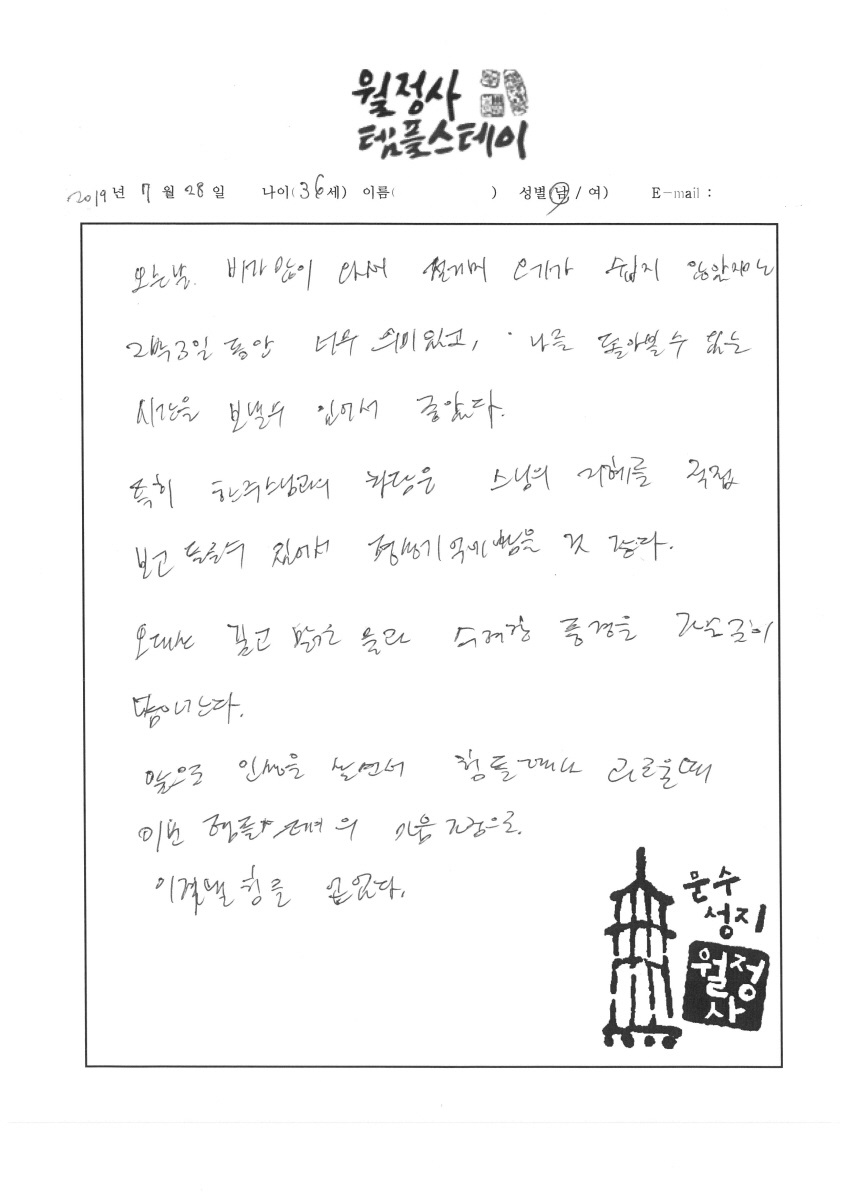 월정사
템플스테이
2019년 7월 28일 나이(36세) 이름( ) 성별(남/여) E-mail :
오는날 비가 많이 와서 오기가 쉽지 않았지만
2박3일 동안 너무 의미있고, 나를 돌아볼 수 있는
시간을 보낼수 있어서 좋았다.
특히 한주스님과의 차담은 스님의 지혜를 직접
보고 들을수 있어서 평생 기억에 남을 것 같다.
오대산 깊고 맑은 물과 수려한 풍경을 가슴깊이
담아간다.
앞으로 인생을 살면서 힘들때나 괴로울때
이번 템플스테이의 마음가짐으로.
이겨낼 힘을 얻었다.
문수
성지
월정
사